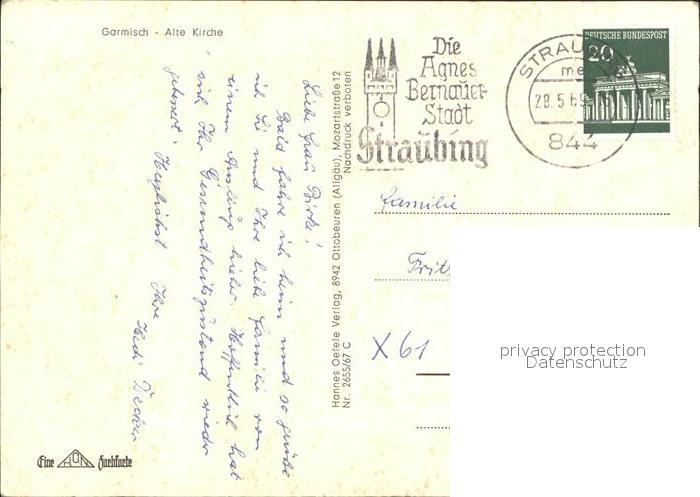 Garmisch - Alte Kirche
Liebe Frau Birke!
Bald fahre ich heim und so grüße
ich Sie und Ihre liebe Familie von
einem Ausflug hieher. Hoffentlich hat
sich Ihr Gesundheitszustand wieder
gebessert. Herzlichst Ihre
Hedi Decker
Eine HON Farbkarte
Hannes Oefele Verlag, 8942 Ottobeuren (Allgäu), Mozartstraße 12
Nr. 2655/67 C Nachdruck verboten
Die
Agnes
Bernauer-
Stadt
Straubing
DEUTSCHE BUNDESPOST
20
STRAU
28.5.69
844
Familie
Frit
X 61
privacy protection
Datenschutz